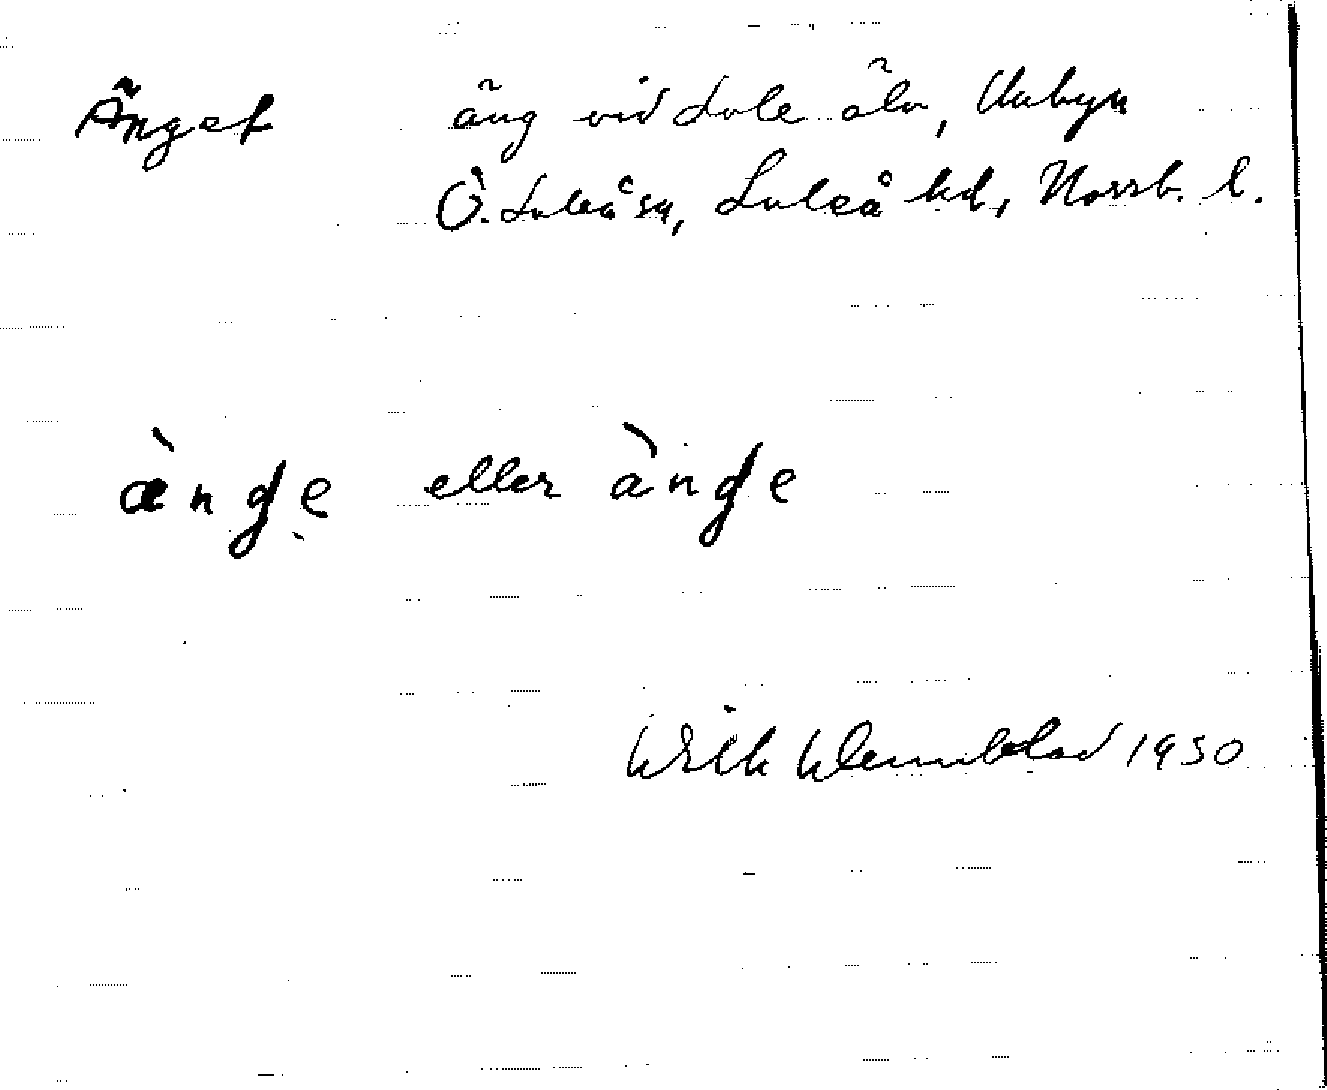 Änget äng vid Lule älv, Unbyn
Ö. Luleå sn, Luleå hd, Norrb. l.
æ̀nđe eller ànđe
Wilh Wennblad 1930